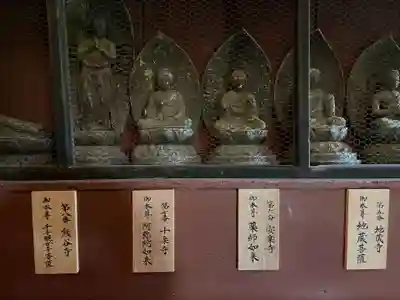 第五番 地蔵寺
御本尊 地蔵菩薩
第六番 安楽寺
御本尊 薬師如来
第七番 十楽寺
御本尊 阿弥陀如来
第八番 熊谷寺
御本尊 千手観世音菩薩